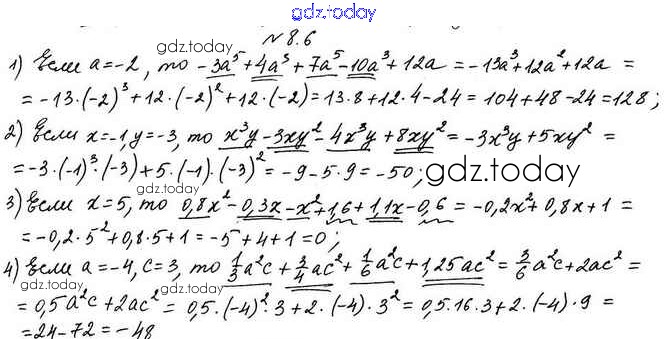 gdz.today
№ 8.6
gdz.today gdz.today
1) Если a=-2, то -3a⁵+4a³+7a⁵-10a³+12a = -13a³+12a²+12a =
= -13·(-2)³+12·(-2)²+12·(-2)=13·8+12·4-24=104+48-24=128;
2) Если x=-1, y=-3, то x³y-3xy²-4x³y+8xy² = -3x³y+5xy² =
= -3·(-1)³·(-3)+5·(-1)·(-3)² = -9-5·9 = -50;
gdz.today gdz.today
3) Если x=5, то 0,8x²-0,3x-x²+1,6+1,1x-0,6 = -0,2x²+0,8x+1 =
= -0,2·5²+0,8·5+1 = -5+4+1=0;
4) Если a=-4, c=3, то 1/3a²c+3/4ac²+1/6a²c+1,25ac² = 3/6a²c+2ac² =
gdz.today gdz.today
= 0,5a²c+2ac² = 0,5·(-4)²·3+2·(-4)·3² = 0,5·16·3+2·(-4)·9 =
= 24-72 = -48
gdz.today